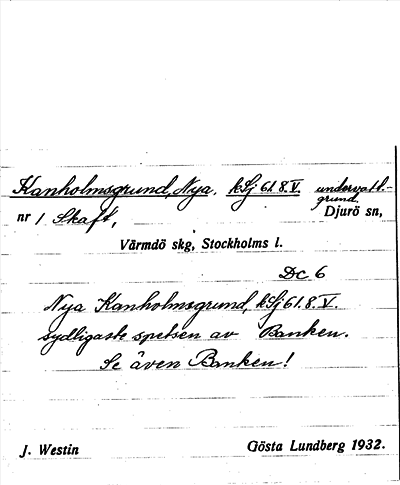 Kanholmsgrund, Nya. kSj 61.8.V. undervatt.-
grund.
nr 1 Skaft, Djurö sn,
Värmdö skg, Stockholms l.
Dc 6
Nya Kanholmsgrund, kSj 61.8.V.
sydligaste spetsen av Banken.
Se även Banken!
J. Westin Gösta Lundberg 1932.